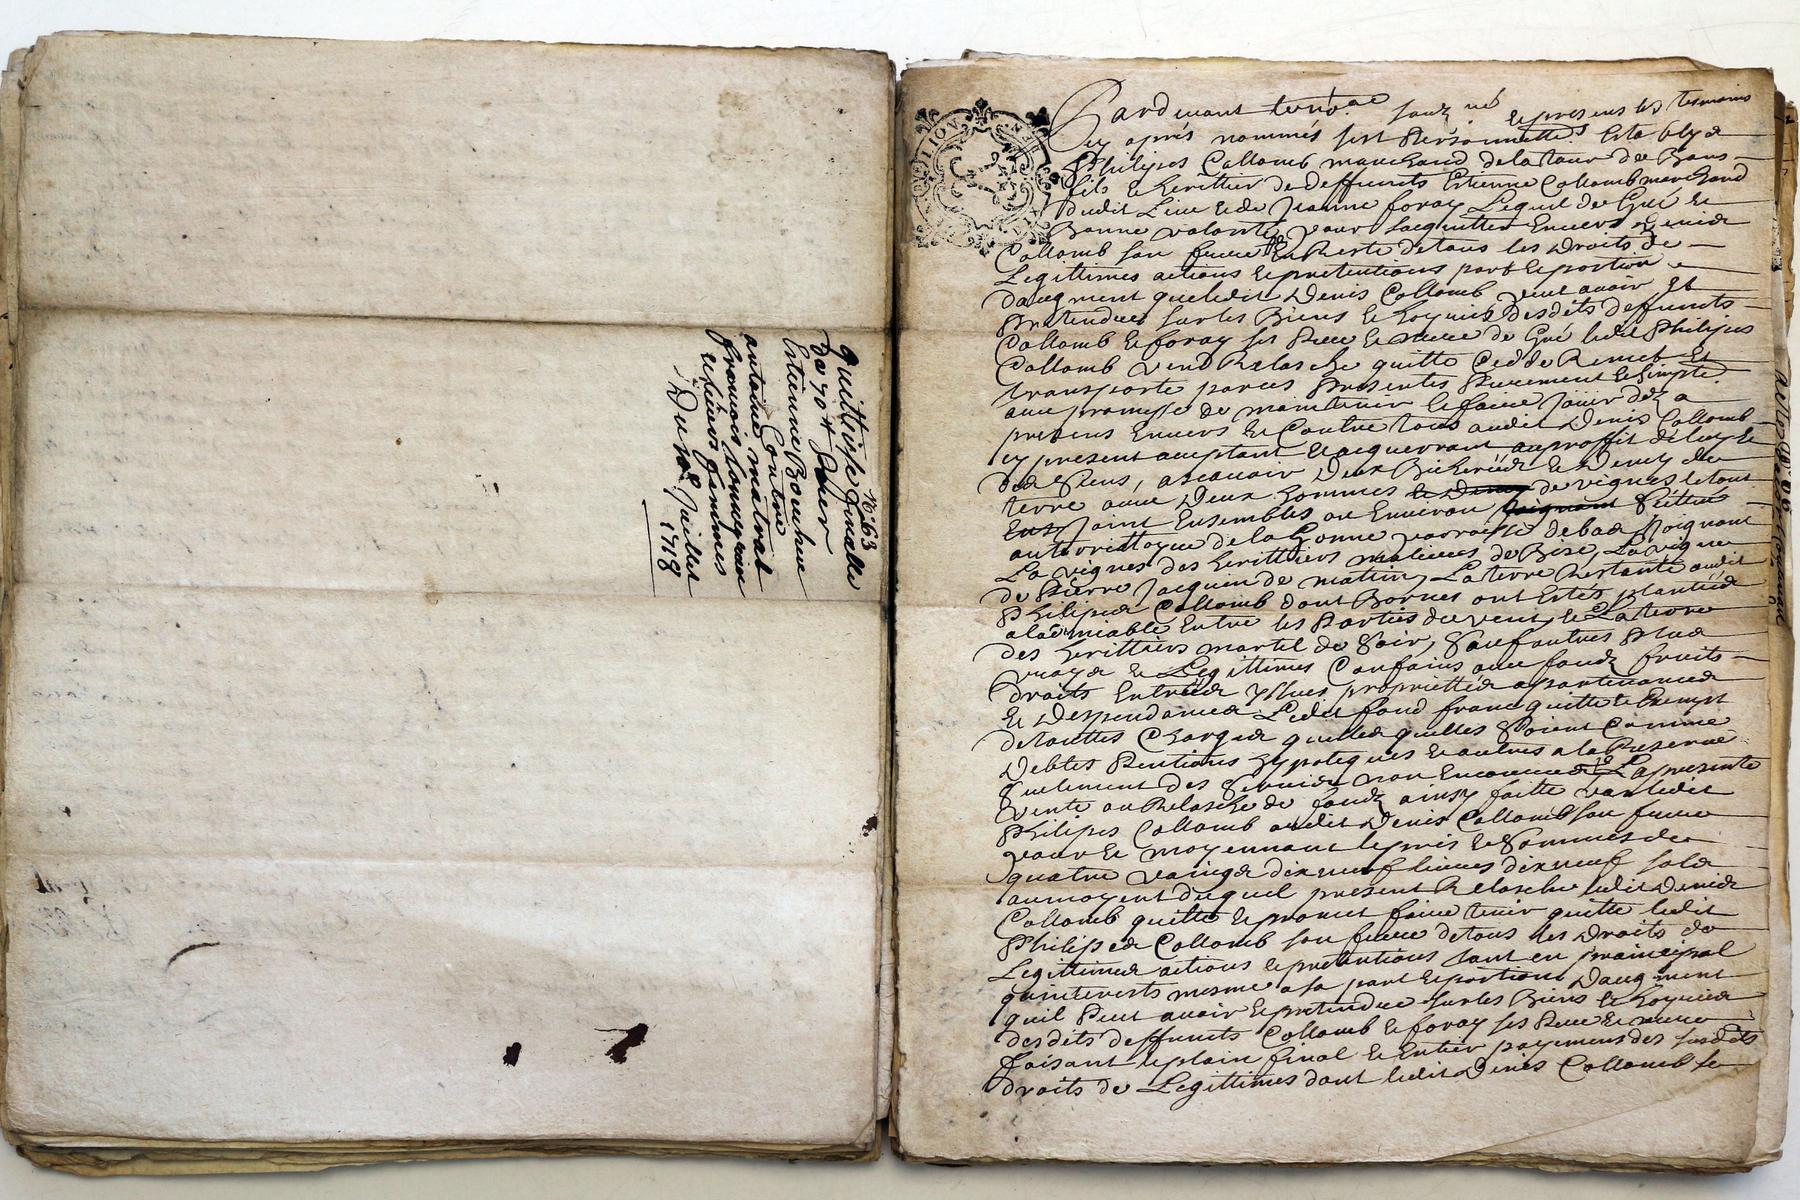 N° 63
quittance finalle
de 70 # pour
Estienne Bouchu
Contre
antoine matrat
francois
et leurs femmes
Du 10e Juillet
1718
LION
Pardevant le no.re souz.né et presens les tesmoins
cy aprés nommés fut Personnellemt. Establye
Philipes Collomb marchand de la tour de
fils et heritier de deffunts Estienne Collomb marchand
dudit Lieu et de Jeanne foray Lequel de Gré et
Bonne volonté pour sacquitter Envers Denis
Collomb son frere du Reste de tous les Droits de
Legittimes actions et pretentions part et portion
daugment que ledit Denis Collomb peut avoir et
Pretendre sur les Biens et hoyries desdits deffunts
Collomb et foray ses Pere et mere de Gré ledit Philipes
Collomb vend Relasche quitte Cedde Remet Et
transporte par ces Presentes Purement et simplemt.
avec promesse de maintenir et faire Jouir dez a
present Envers et Contre tous audit Denis Collomb
cy present acceptant et acquerrant au proffit de luy et
des siens, ascavoir Deux Bicherées et Demy de
terre avec Deux hommes de vignes le tout
Joint Ensembles ou Environ, scitué
au territoyre de la Gonne parroisse de Joignant
La vignes des heritiers de Bize, La vigne
de Pierre Jacquin de matin, La terre Restante audit
Philipes Collomb dont Bornes ont Estés plantées
a la miable Entre les Parties de vent, et La terre
des heritiers martel de Soir, Sauf autres Plus
vrays et Legittimes Confains avec fondz fruits
droits Entrées yssues proprietés appartenances
et Despendances Ledit fond franc quitte et Exempt
de touttes Charges quelles quelles Soient Comme
Debtes Pentions hypoteques et autres a la Reserve
seulement des Servis non Encourues La presente
vente ou Relasche de fondz ainsy faitte par ledit
Philipes Collomb audit Denis Collomb son frere
pour et moyennant le prix et Sommes de
quatre vaingt dix neuf livres dix neuf sols
au moyent duquel present Relasche ledit Denis
Collomb quitte et promet faire tenir quitte ledit
Philipes Collomb son frere de tous les Droits de
Legittimes actions et pretentions tant en principal
quinterests mesme a sa part et portion Daugment
quil Peut avoir et pretendre sur les Biens et hoyries
desdits deffunts Collomb et foray ses Pere et mere
faisant le plain final et Entier payement des susdits
droits de Legittimes dont ledit Denis Collomb se